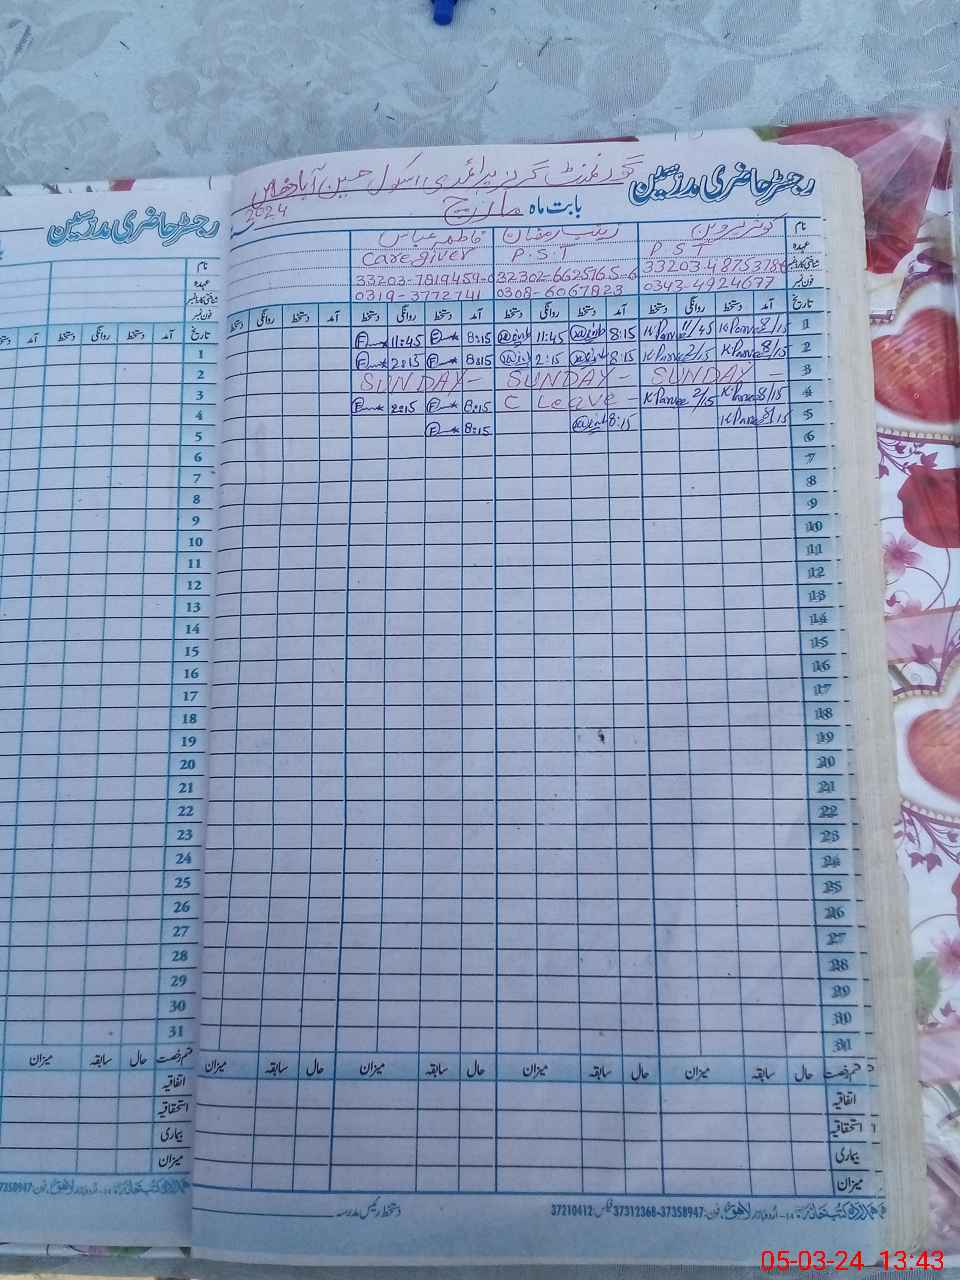 رجسٹر حاضری مدرسین گورنمنٹ گرلز پرائمری اسکول حسین آباد
بابت ماہ مارچ 2024
نام کوثر پروین زینب رمضان فاطمہ عباس
عہدہ P S T P.S.T Care giver
33203-4875378-6 32302-6625765-6 33203-7819459-0
فون نمبر 0343-4924677 0308-6067823 0319-3772741
تاریخ آمد دستخط روانگی دستخط آمد دستخط روانگی دستخط آمد دستخط روانگی دستخط آمد دستخط روانگی دستخط
1 8/15 K Parvee 11/45 K Parvee 8:15 11:45 8:15 11:45
2 8/15 K Parvee 2/15 K Parvee 8:15 2:15 8:15 2:15
3 SUNDAY - SUNDAY - SUNDAY -
4 8/15 K Parvee 2/15 K Parvee C Leave - 8:15 2:15
5 8/15 K Parvee 8:15 8:15
6
7
8
9
10
11
12
13
14
15
16
17
18
19
20
21
22
23
24
25
26
27
28
29
30
31
قسم رخصت حال سابقہ میزان حال سابقہ میزان حال سابقہ میزان حال سابقہ میزان
اتفاقیہ
استحقاقیہ
بیماری
میزان
اردو بازار لاہور فون: 37358947-37312368 فیکس: 37210412
دستخط رئیس مدرسہ
رجسٹر حاضری مدرسین
نام
عہدہ
فون نمبر
تاریخ آمد دستخط روانگی دستخط آمد
1
2
3
4
5
6
7
8
9
10
11
12
13
14
15
16
17
18
19
20
21
22
23
24
25
26
27
28
29
30
31
قسم رخصت حال سابقہ میزان
اتفاقیہ
استحقاقیہ
بیماری
میزان
05-03-24 13:43